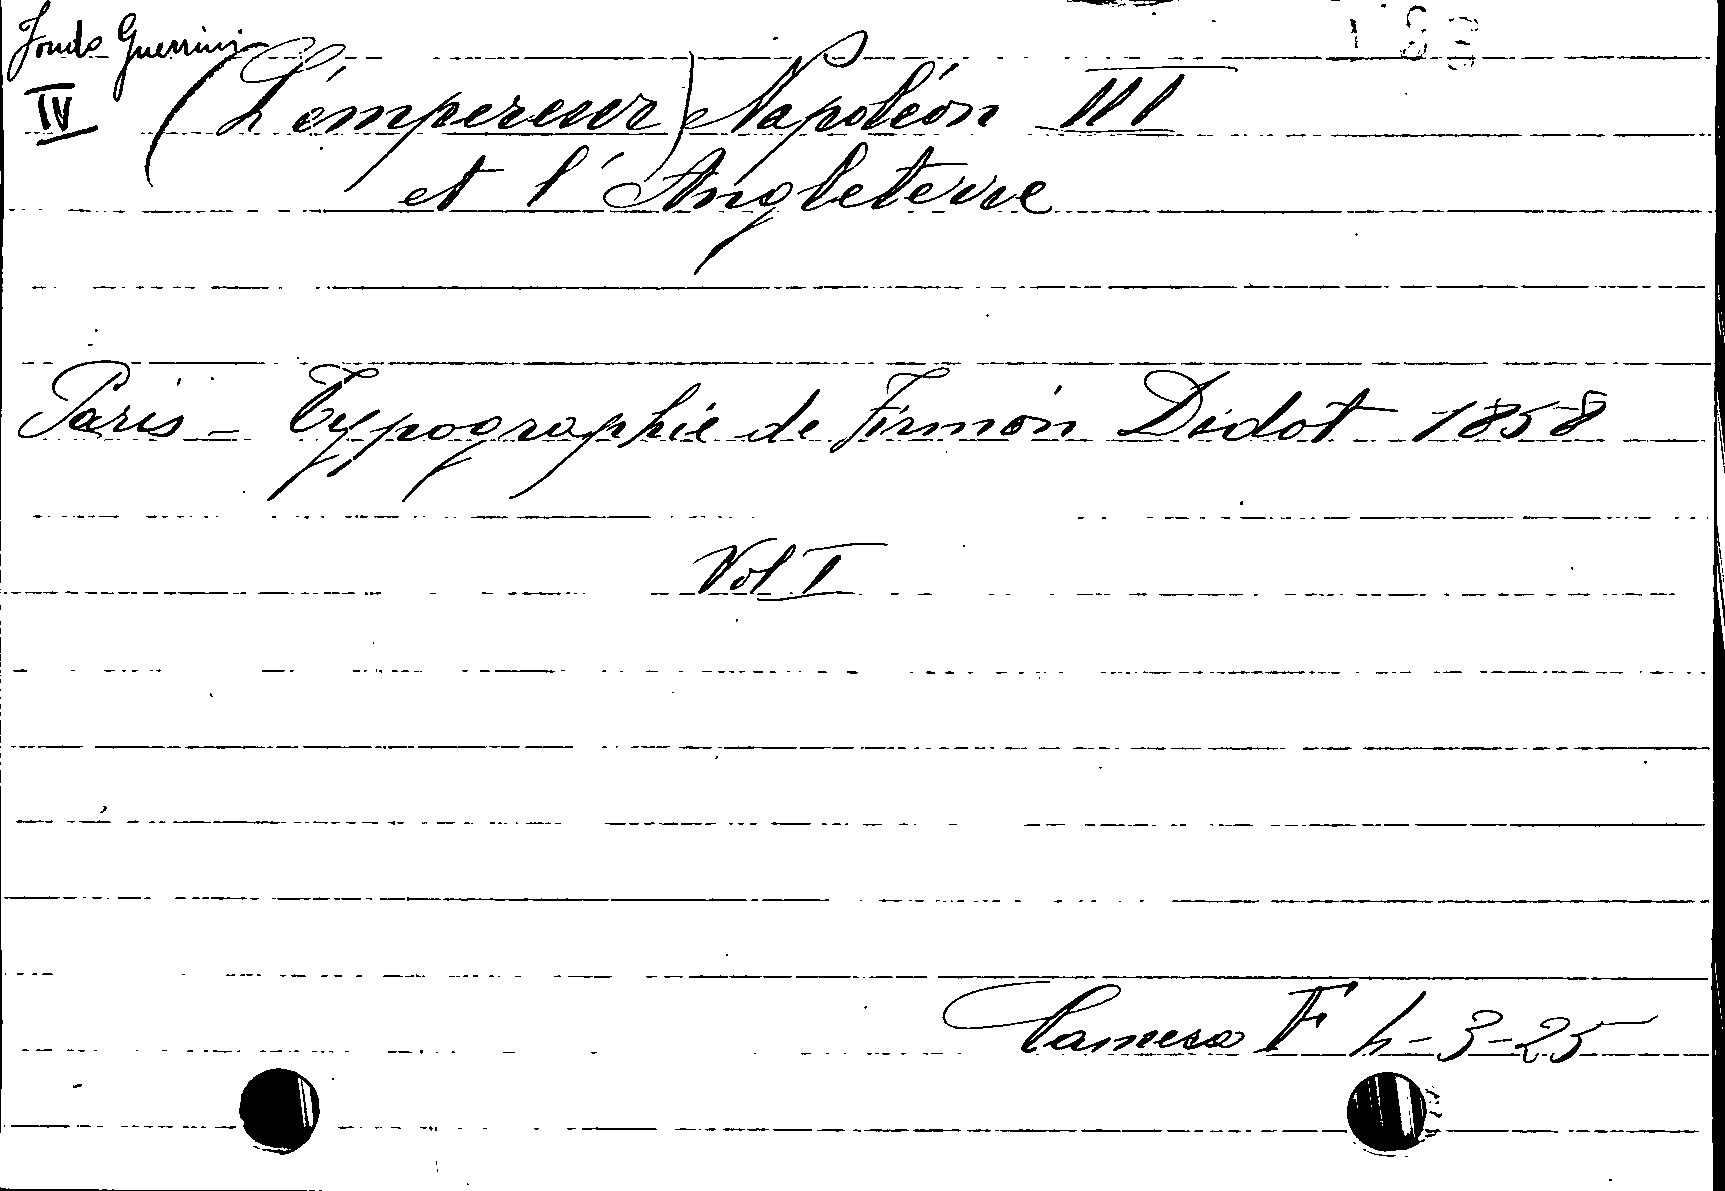 Fondo Guerrini
IV (L'émpereur) Napoléon III
et l'Angleterre
Paris - Typographie de Firmin Didot 1858
Vol I
Camera F h-3-25